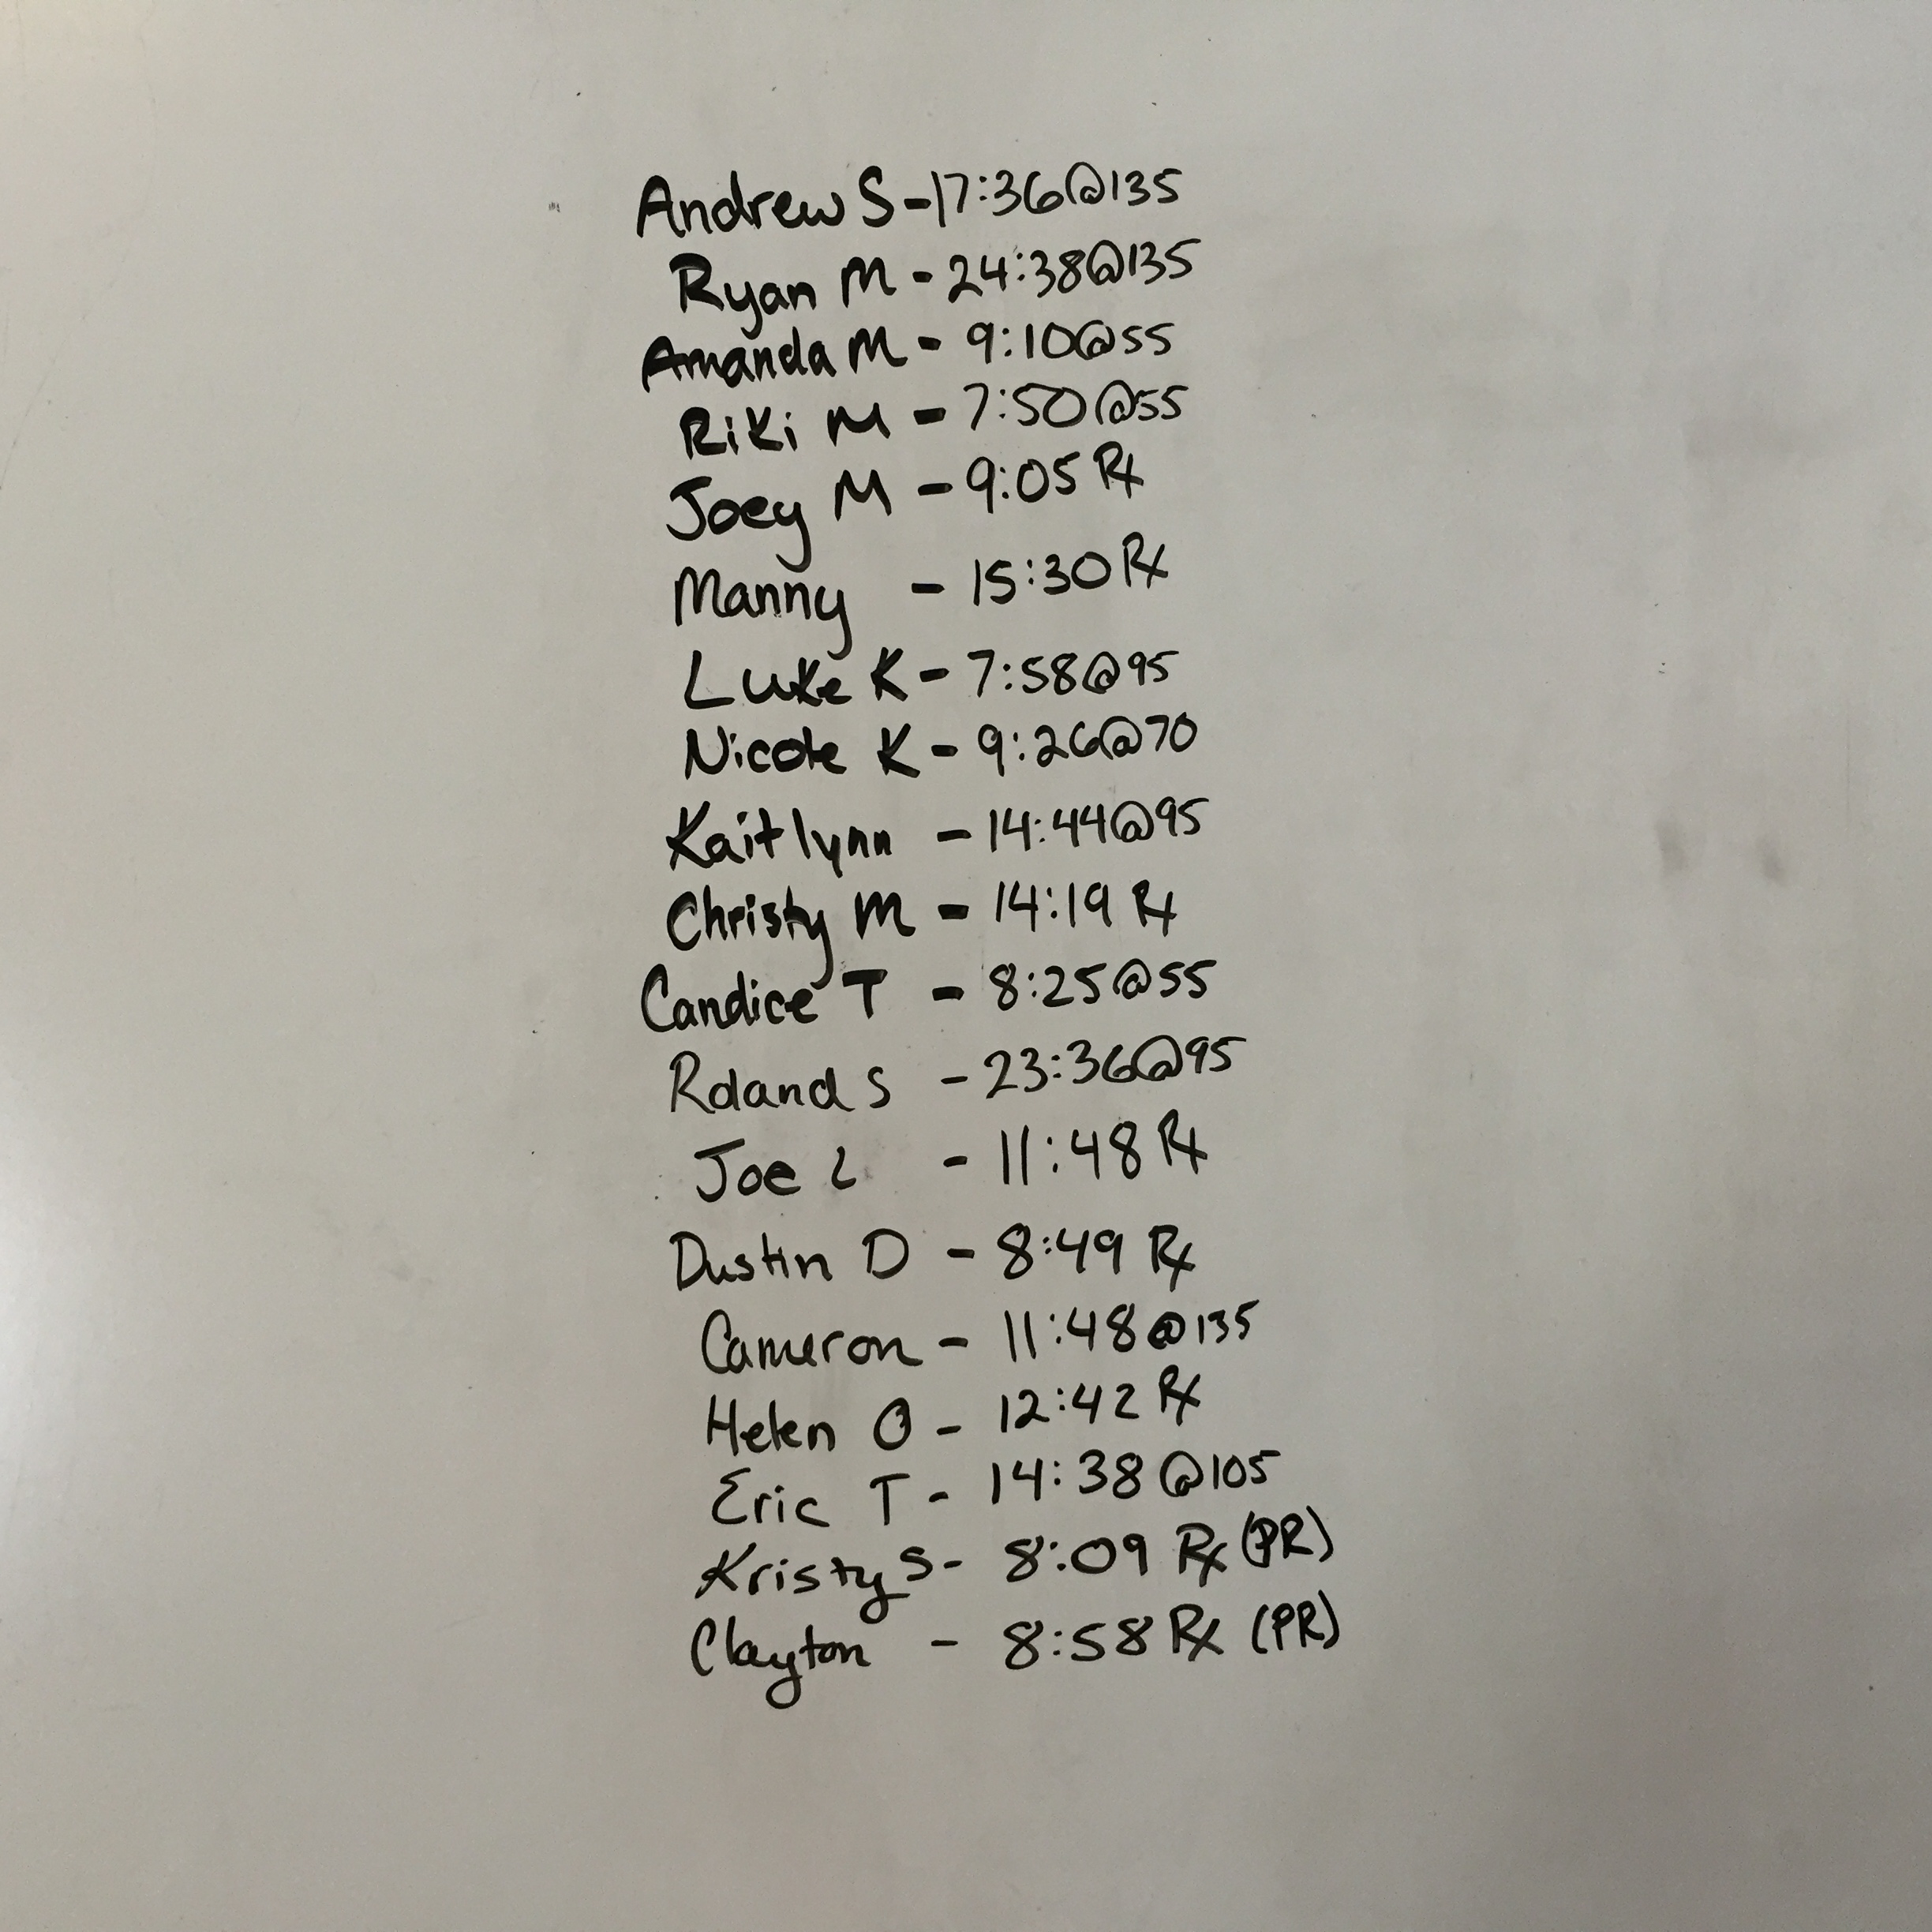 Andrew S - 17:36@135
Ryan M - 24:38@135
Amanda M - 9:10@55
Riki M - 7:50@55
Joey M - 9:05 Rx
Manny - 15:30 Rx
Luke K - 7:58@95
Nicole K - 9:26@70
Kaitlynn - 14:44@95
Christy M - 14:19 Rx
Candice T - 8:25@55
Roland S - 23:36@95
Joe L - 11:48 Rx
Dustin D - 8:49 Rx
Cameron - 11:48@135
Helen O - 12:42 Rx
Eric T - 14:38@105
Kristy S - 8:09 Rx (PR)
Clayton - 8:58 Rx (PR)